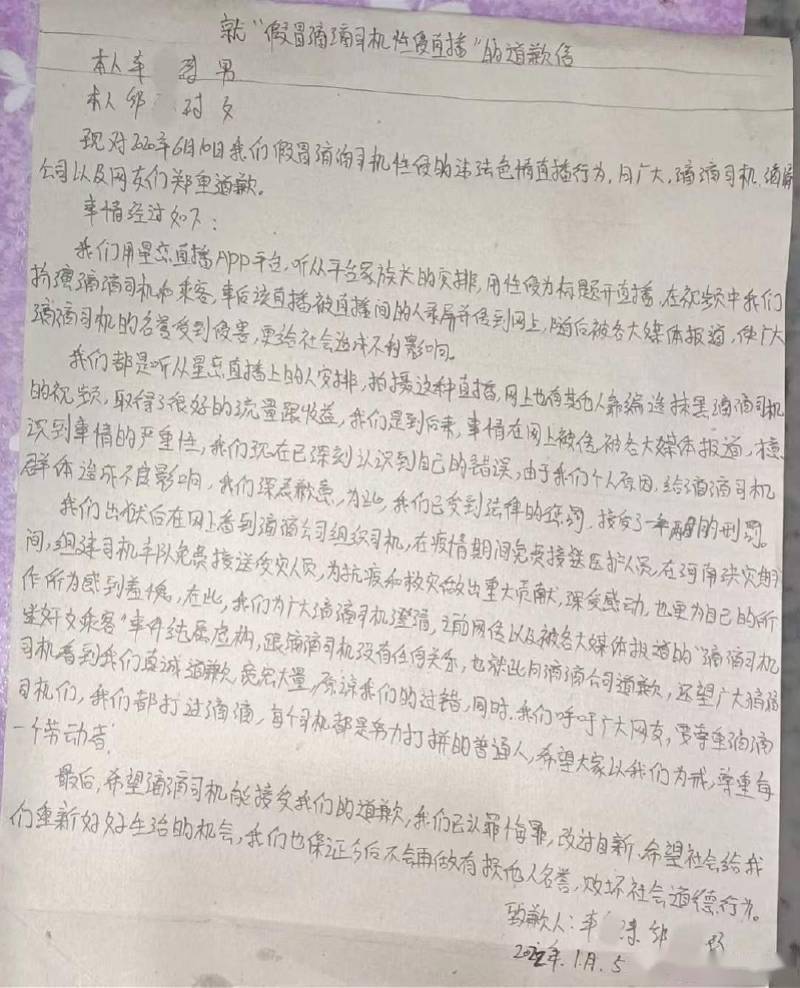 就“假冒滴滴司机性侵直播”的道歉信
本人 男
本人 女
现对2020年6月10日我们假冒滴滴司机性侵的违法色情直播行为，向广大，滴滴司机，滴滴
公司以及网友们郑重道歉。
事情经过如下：
我们用星恋直播APP平台，听从平台家族长的安排，用性侵为标题开直播，在视频中我们
扮演滴滴司机和乘客，事后该直播被直播间的人录屏并传到网上，随后被各大媒体报道，使广大
滴滴司机的名誉受到侵害，更给社会造成不利影响。
我们都是听从星恋直播上的人安排，拍摄这种直播，网上也有其他人靠编造抹黑滴滴司机
的视频，取得了很好的流量跟收益，我们是到后来，事情在网上被传，被各大媒体报道，才意
识到事情的严重性，我们现在已深刻认识到自己的错误，由于我们个人原因，给滴滴司机
群体造成不良影响，我们深表歉意，为此，我们已受到法律的惩罚，接受了一年两的刑罚。
我们出狱后在网上看到滴滴公司组织司机，在疫情期间免费接送医护人员，在河南洪灾期
间，组建司机车队免费接送受灾人员，为抗疫和救灾做出重大贡献，深受感动，也更为自己的所
作所为感到羞愧，在此，我们为广大滴滴司机澄清，之前网传以及被各大媒体报道的“滴滴司机
迷奸女乘客”事件纯属虚构，跟滴滴司机没有任何关系，也就此向滴滴公司道歉，还望广大滴滴
司机看到我们真诚道歉，宽宏大量，原谅我们的过错，同时，我们呼吁广大网友，要尊重滴滴
司机们，我们都打过滴滴，每个司机都是努力打拼的普通人，希望大家以我们为戒，尊重每
一个劳动者！
最后，希望滴滴司机能接受我们的道歉，我们已认罪悔罪，改过自新，希望社会给我
们重新好好生活的机会，我们也保证今后不会再做有损他人名誉，败坏社会道德行为。
致歉人：
2022年.1月.5